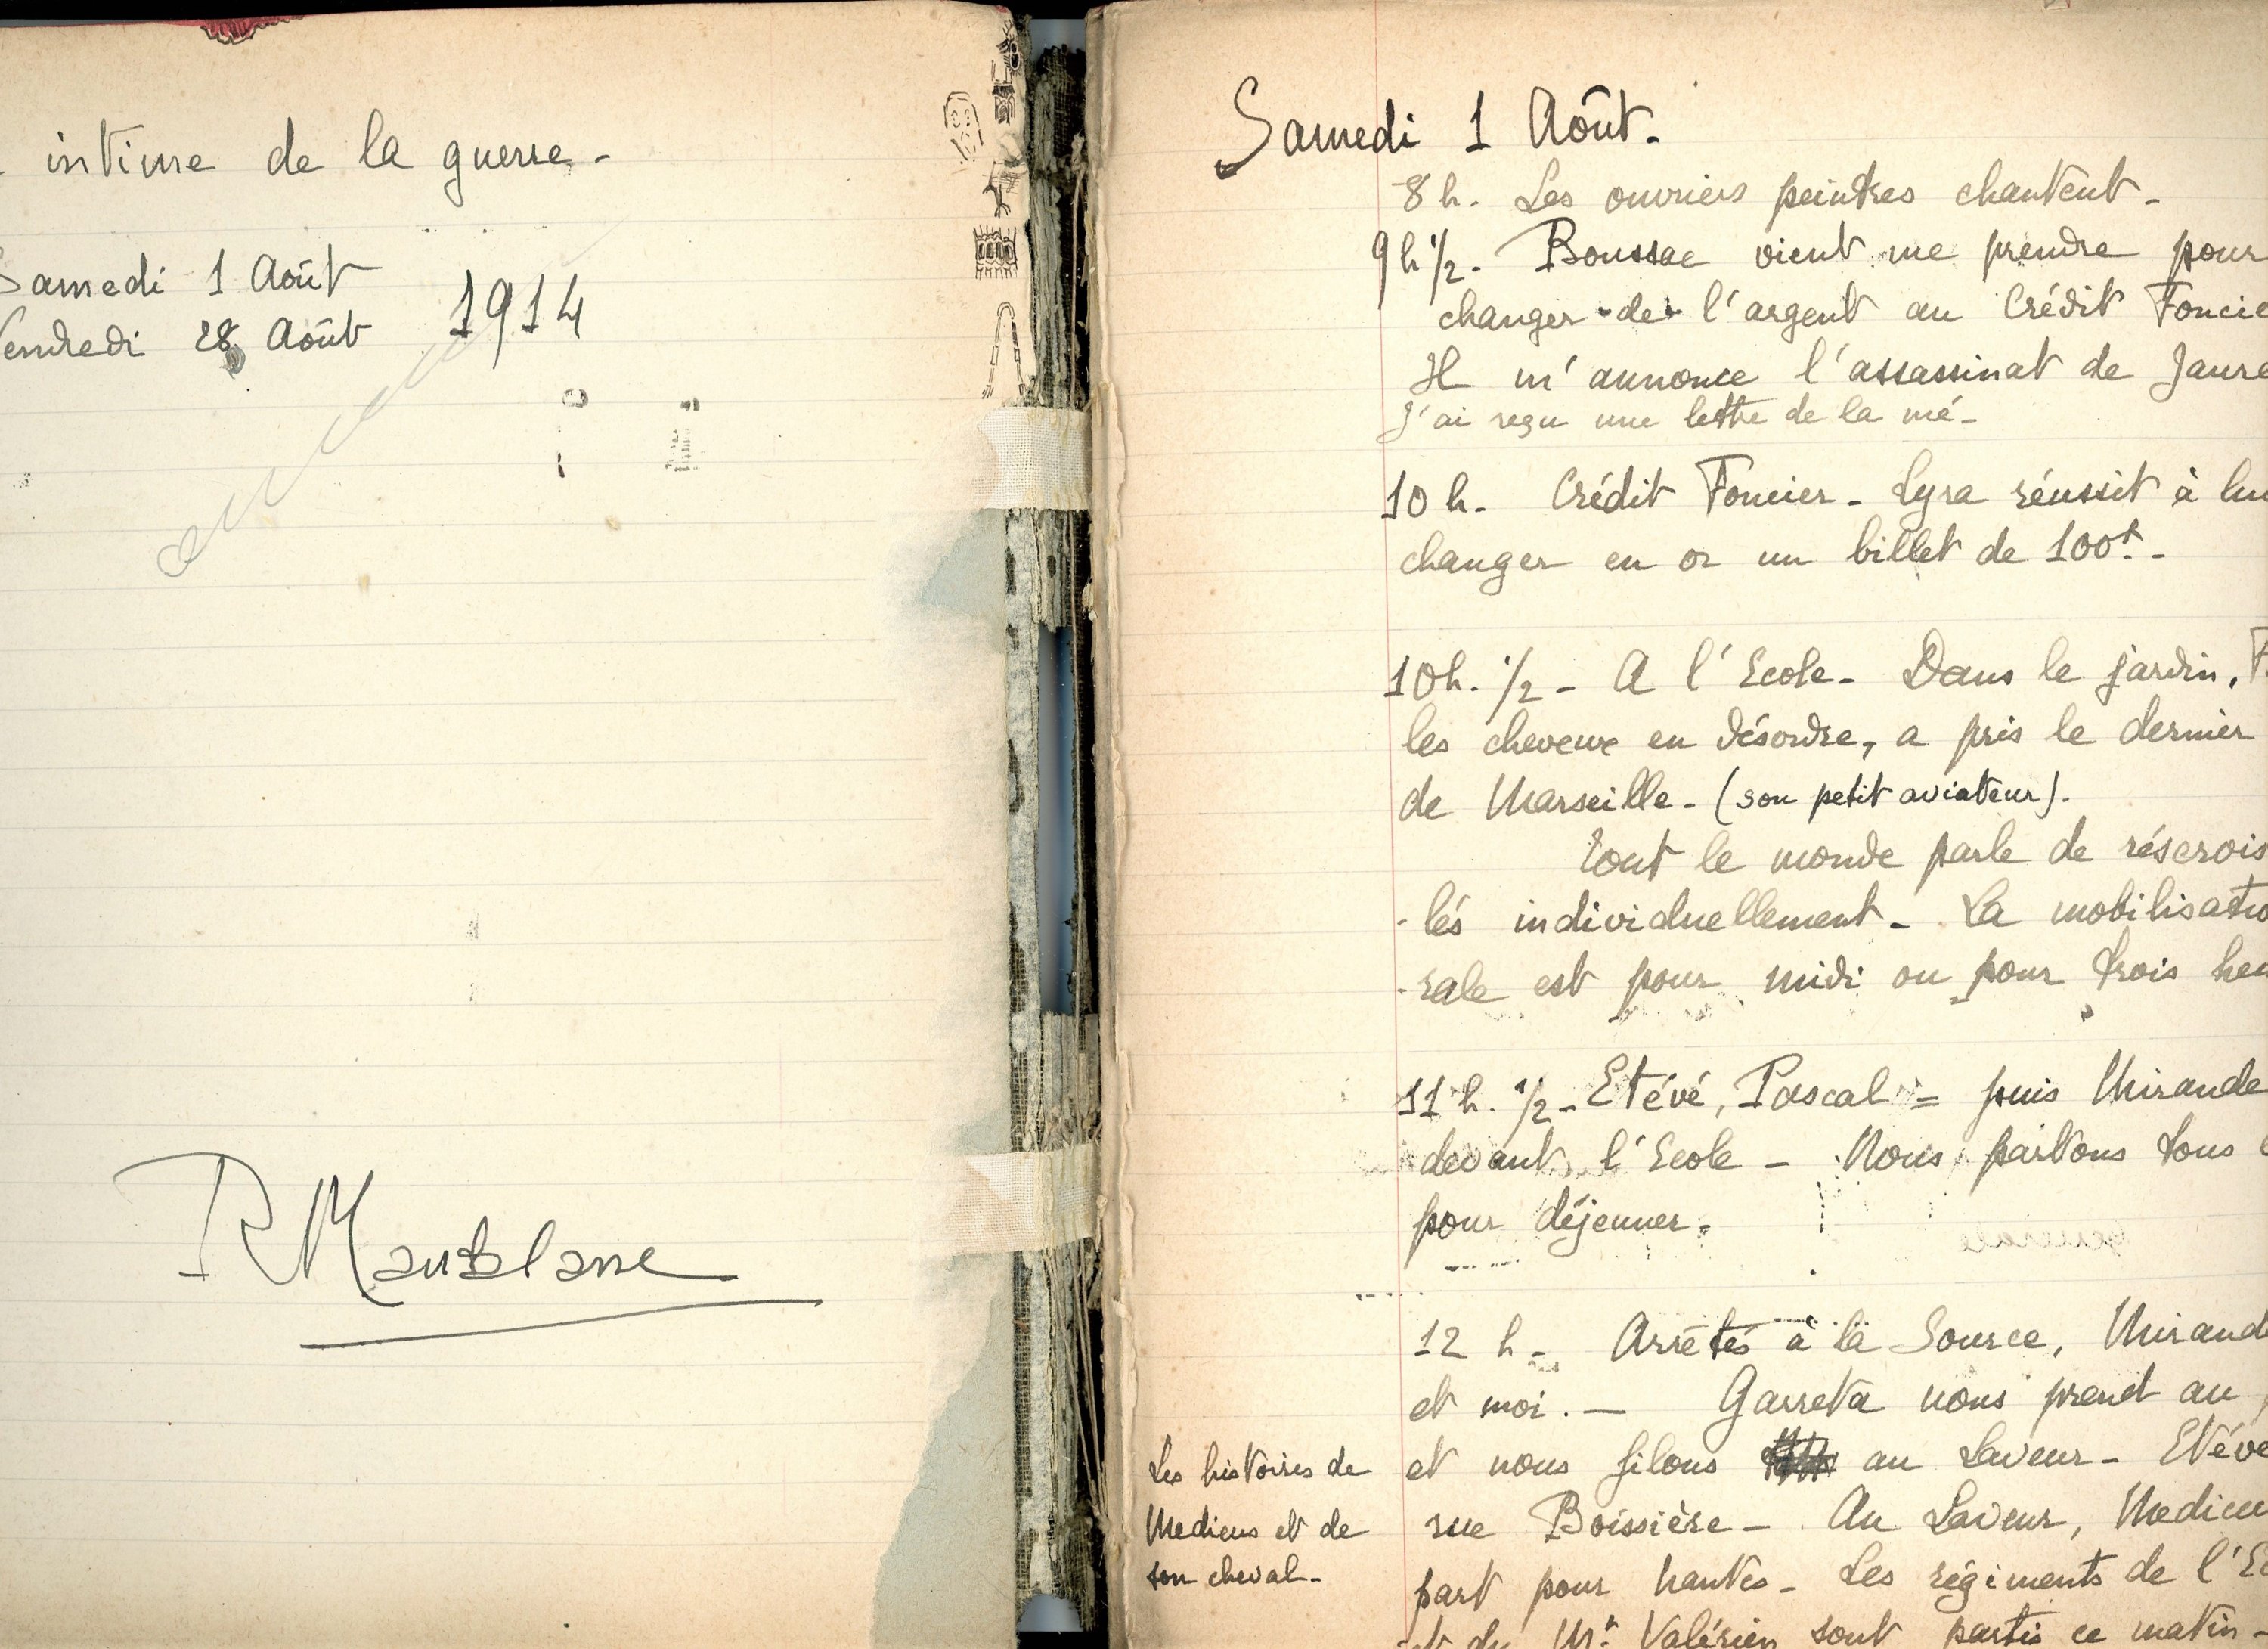 intime de la guerre -
Samedi 1 Août
Vendredi 28 Août 1914
R Maublanc
Samedi 1 Août.
8 h. Les ouvriers peintres chantent -
9 h 1/2. Boussac vient me prendre pour
changer de l'argent au Crédit Foncie
Il m'annonce l'assassinat de Jaurè
J'ai reçu une lettre de la mé-
10 h. Crédit Foncier - Lyra réussit à
changer en or un billet de 100f. -
10 h. 1/2 - A l'Ecole - Dans le jardin,
les cheveux en désordre, a pris le dernier
de Marseille - (son petit aviateur).
Tout le monde parle de réservis
-lés individuellement - La mobilisatio
-rale est pour midi ou pour trois heu
11 h. 1/2 - Etévé, Pascal = puis Mirande
devant l'Ecole - Nous partons tous
pour déjeuner.
12 h - Arrêtés à la Source, Mirand
et moi. — Garreta nous prend au
et nous filons au Laveur - Etévé
rue Boissière - Au Laveur, Medicu
part pour Nantes - Les régiments de l'Ec
et du Mt Valérien sont partis ce matin -
Les histoires de
Medicus et de
son cheval -